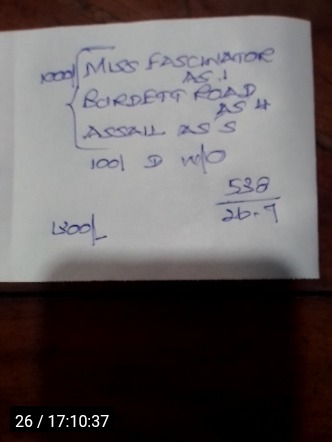 1000/ MISS FASCINATOR
AS 1
BURDETT ROAD
AS 4
ASSAIL AS 5
100/ D W/O
538
26-7
1300/-
26 / 17:10:37